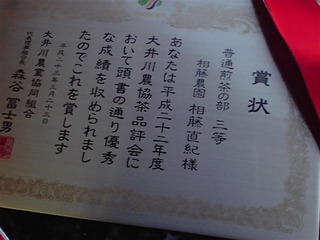 賞状
普通煎茶の部 三等
相藤農園 相藤直紀様
あなたは平成二十二年度
大井川農協茶品評会に
おいて頭書の通り優秀
な成績を収められまし
たのでこれを賞します
平成二十三年三月二十三日
大井川農業協同組合
代表理事組合長 森谷冨士男